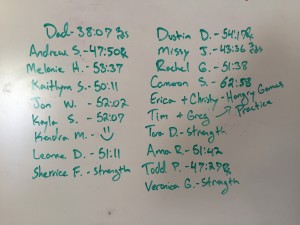 Dad - 38:07
Andrew S. - 47:50
Melanie H. - 53:37
Kaitlynn S. - 50:11
Jon W. - 52:02
Kayla S. - 52:07
Kendra M. -
Leanne D. - 51:11
Sherrice F. - Strength
Dustin D. - 54:17
Missy J. - 43:36
Rachel G. - 51:38
Cameron S. - 62:58
Erica + Christy - Hungry Games
Tim + Greg Practice
Tara D. - Strength
Ama R. - 51:42
Todd P. - 47:27
Veronica G. - Strength